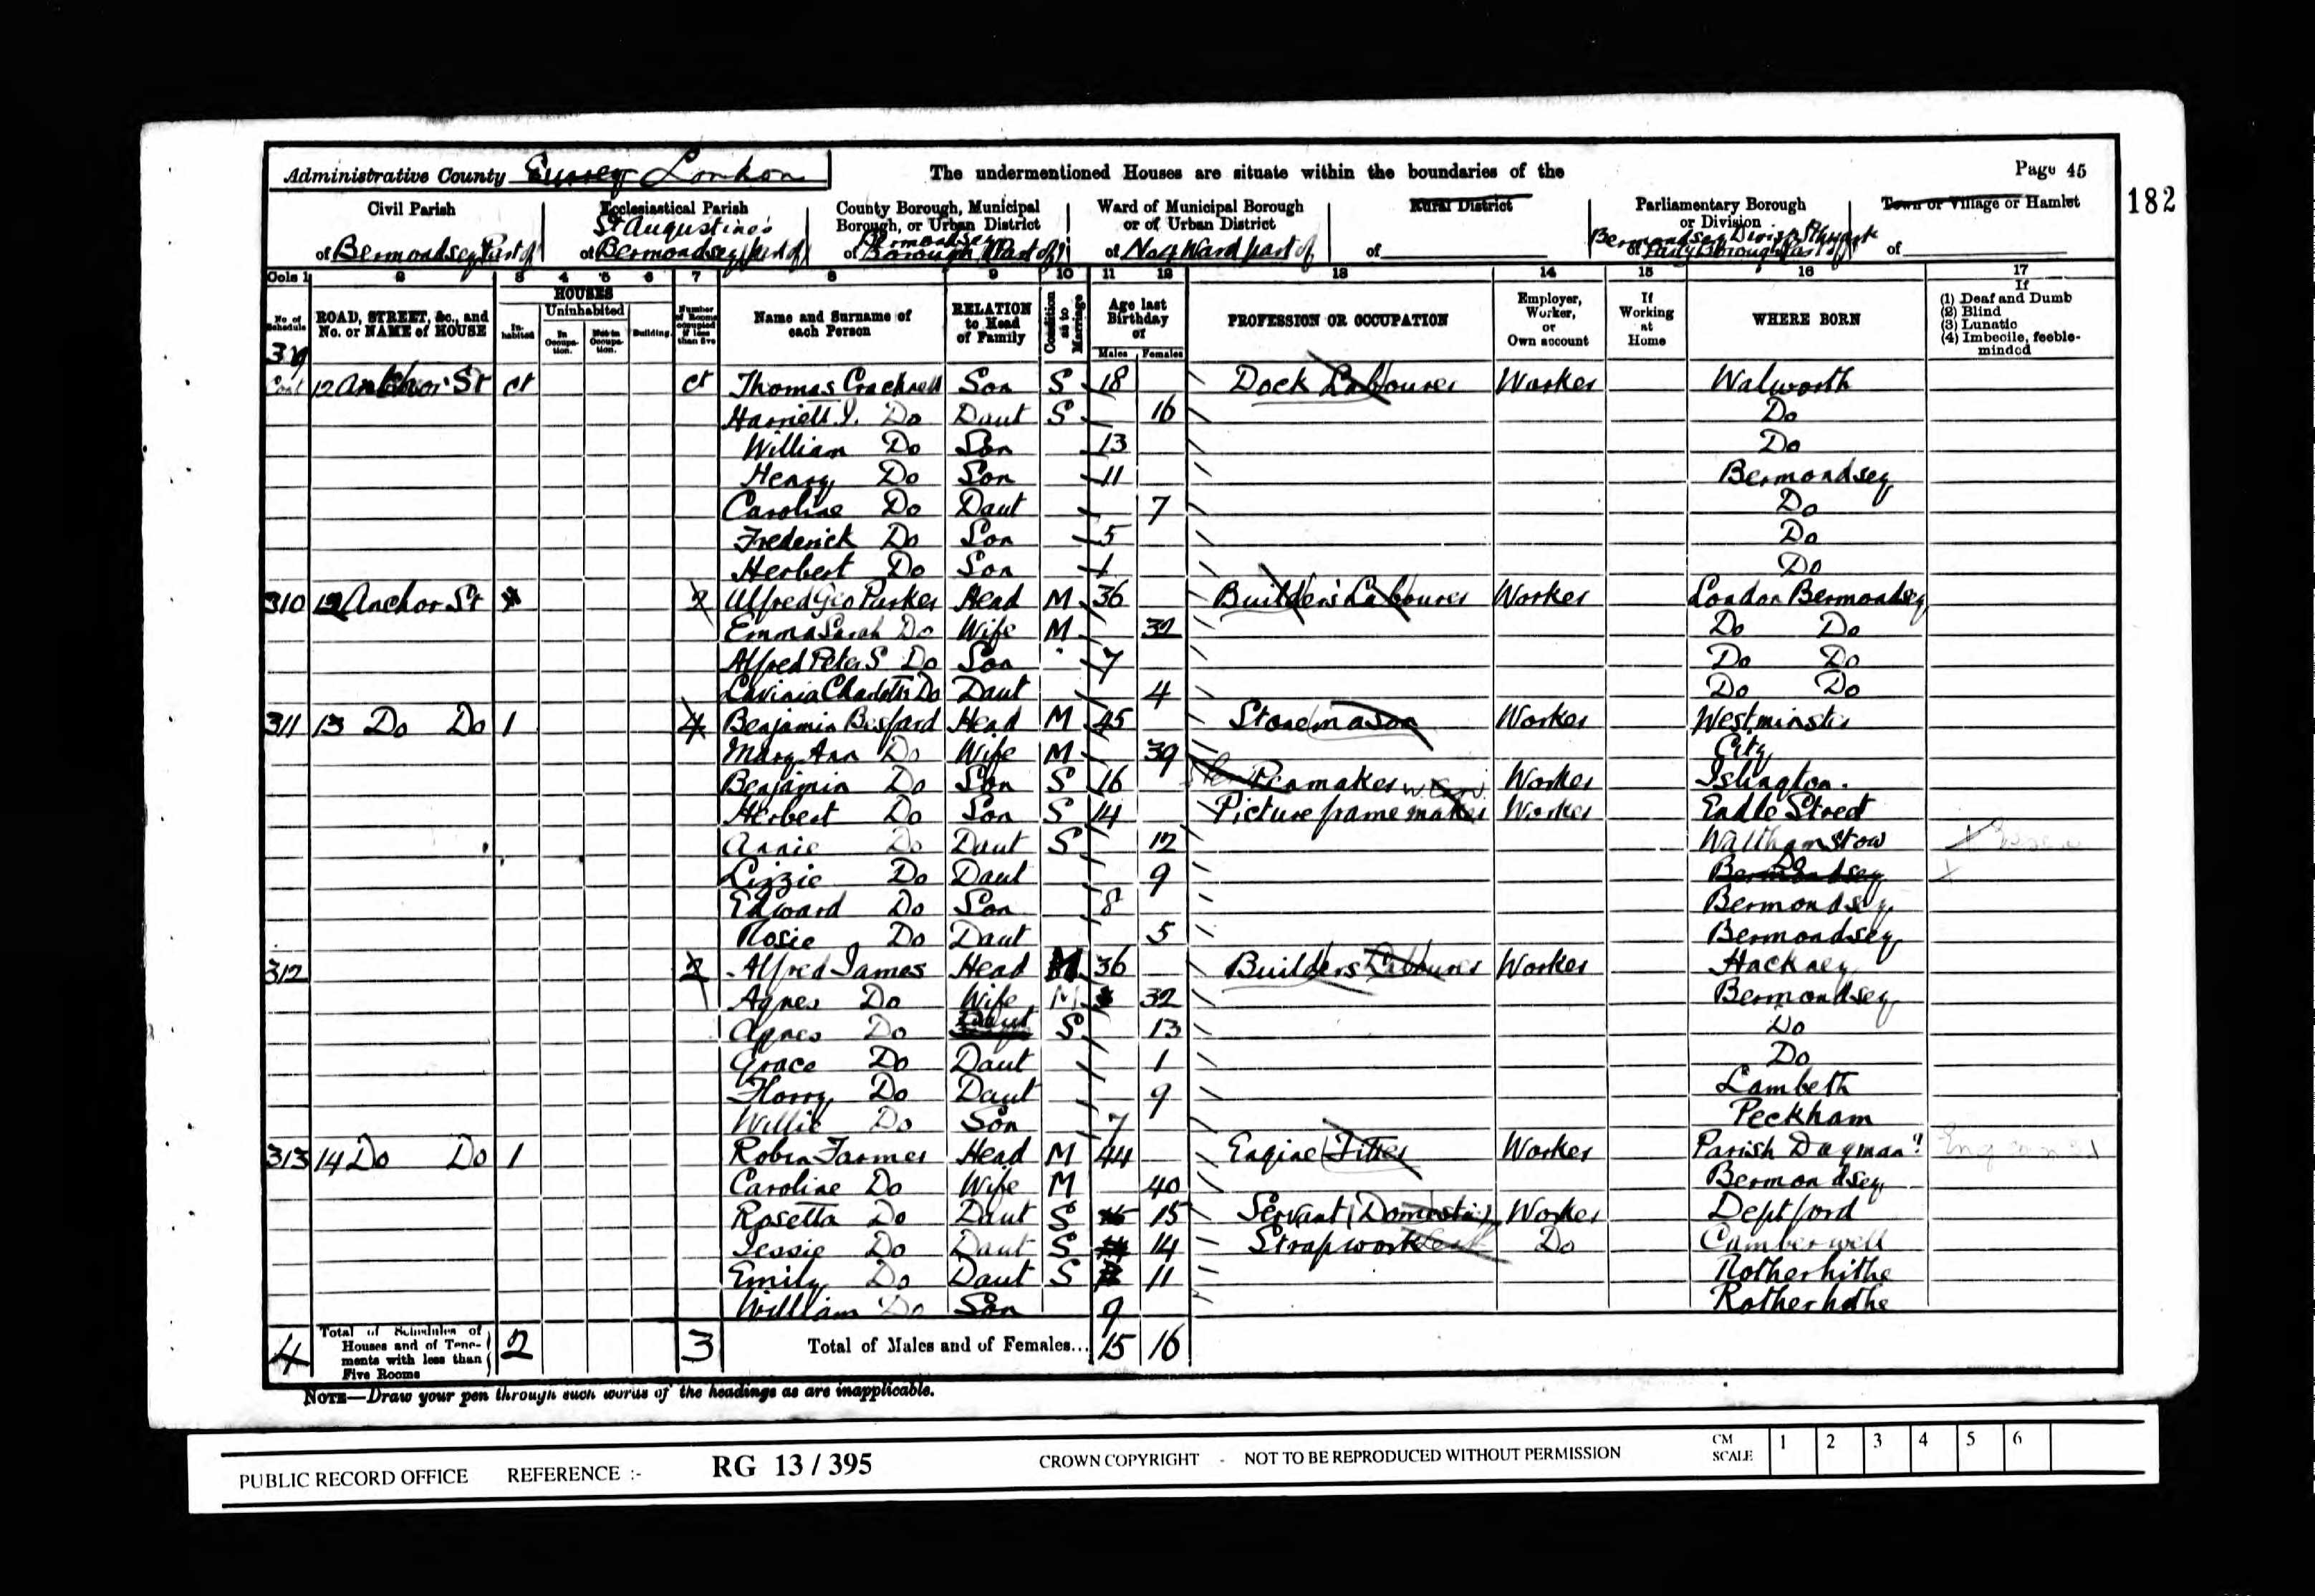 Administrative County Surrey London
The undermentioned Houses are situate within the boundaries of the
Page 45
182
Civil Parish
of Bermondsey Part of
Ecclesiastical Parish
St Augustine's
of Bermondsey (part of)
County Borough, Municipal Borough, or Urban District
of Bermondsey Borough (Part of)
Ward of Municipal Borough or of Urban District
of No 4 Ward part of
Rural District
of
Parliamentary Borough or Division
of Bermondsey Divis Sthwark Parly Borough Part of
Town or Village or Hamlet
of
Cols 1 2 3 4 5 6 7 8 9 10 11 12 13 14 15 16 17
No. of Schedule
ROAD, STREET, &c., and No. or NAME of HOUSE
HOUSES
Inhabited
Uninhabited
In Occupation.
Not in Occupation.
Building.
Number of Rooms occupied if less than five
Name and Surname of each Person
RELATION to Head of Family
Condition as to Marriage
Age last Birthday of
Males Females
PROFESSION OR OCCUPATION
Employer, Worker, or Own account
If Working at Home
WHERE BORN
If
(1) Deaf and Dumb
(2) Blind
(3) Lunatic
(4) Imbecile, feeble-minded
Cont 12 Anchor St ct ct Thomas Cracknell Son S 18 Dock Labourer Worker Walworth
Harriett I. Do Daut S 16 Do
William Do Son 13 Do
Henry Do Son 11 Bermondsey
Caroline Do Daut 7 Do
Frederick Do Son 5 Do
Herbert Do Son 1 Do
310 12 Anchor St 2 Alfred Geo Parker Head M 36 Builder's Labourer Worker London Bermondsey
Emma Sarah Do Wife M 32 Do Do
Alfred Peter S Do Son 7 Do Do
Lavinia Charlotte Do Daut 4 Do Do
311 13 Do Do 1 4 Benjamin Besford Head M 45 Stonemason Worker Westminster
Mary Ann Do Wife M 39 City
Benjamin Do Son S 16 Penmaker Worker Islington.
Herbert Do Son S 14 Picture frame maker Worker Eadle Street
Annie Do Daut S 12 Walthamstow
Lizzie Do Daut 9 Bermondsey Do
Edward Do Son 8 Bermondsey
Rosie Do Daut 5 Bermondsey
312 2 Alfred James Head M 36 Builders Labourer Worker Hackney
Agnes Do Wife M 32 Bermondsey
Agnes Do Daut S 13 Do
Grace Do Daut 1 Do
Florry Do Daut 9 Lambeth
Willie Do Son 7 Peckham
313 14 Do Do 1 Robin Farmer Head M 44 Engine Fitter Worker Parish Dagman"
Caroline Do Wife M 40 Bermondsey
Rosetta Do Daut S 15 Servant (Domestic) Worker Deptford
Jessie Do Daut S 14 Strapwork Do Camberwell
Emily Do Daut S 11 Rotherhithe
William Do Son 9 Rotherhithe
4 Total of Schedules of Houses and of Tenements with less than Five Rooms 2 3 Total of Males and of Females... 15 16
NOTE—Draw your pen through such words of the headings as are inapplicable.
PUBLIC RECORD OFFICE REFERENCE :- RG 13 / 395 CROWN COPYRIGHT - NOT TO BE REPRODUCED WITHOUT PERMISSION
CM SCALE 1 2 3 4 5 6